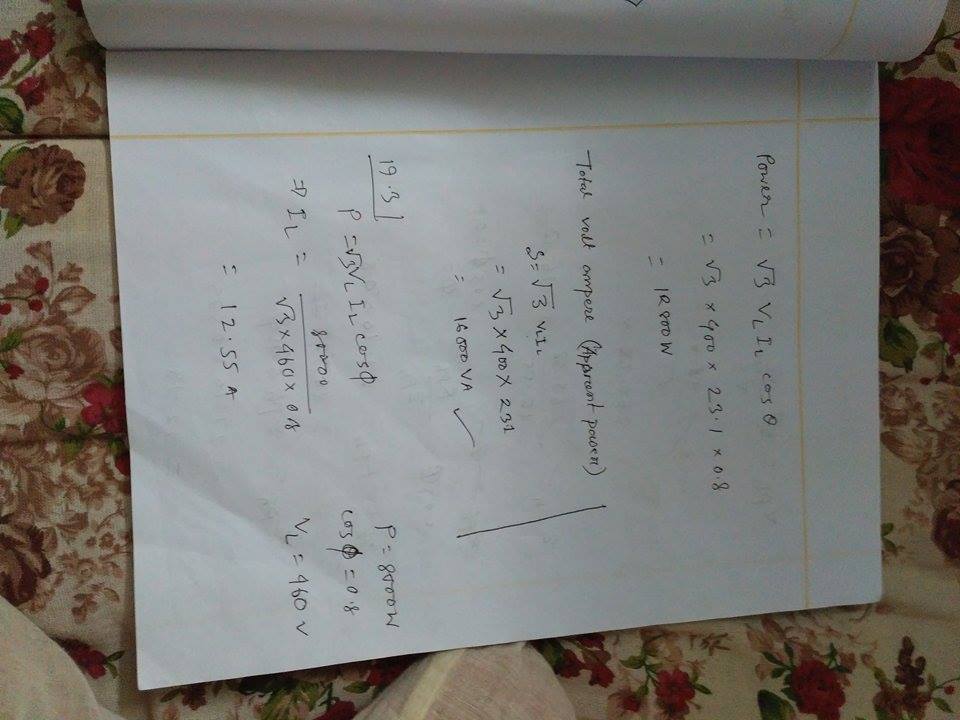 Power = √3 V_L I_L cos θ
= √3 × 400 × 23.1 × 0.8
= 12800W
Total volt ampere (Apparent power)
S = √3 V_L I_L
= √3 × 400 × 231
= 16000 VA ✓
19.3
P = √3 V_L I_L cos ϕ
P = 8000W
cos ϕ = 0.8
⇒ I_L = 80000 / √3 × 460 × 0.8
V_L = 460 V
= 12.55 A